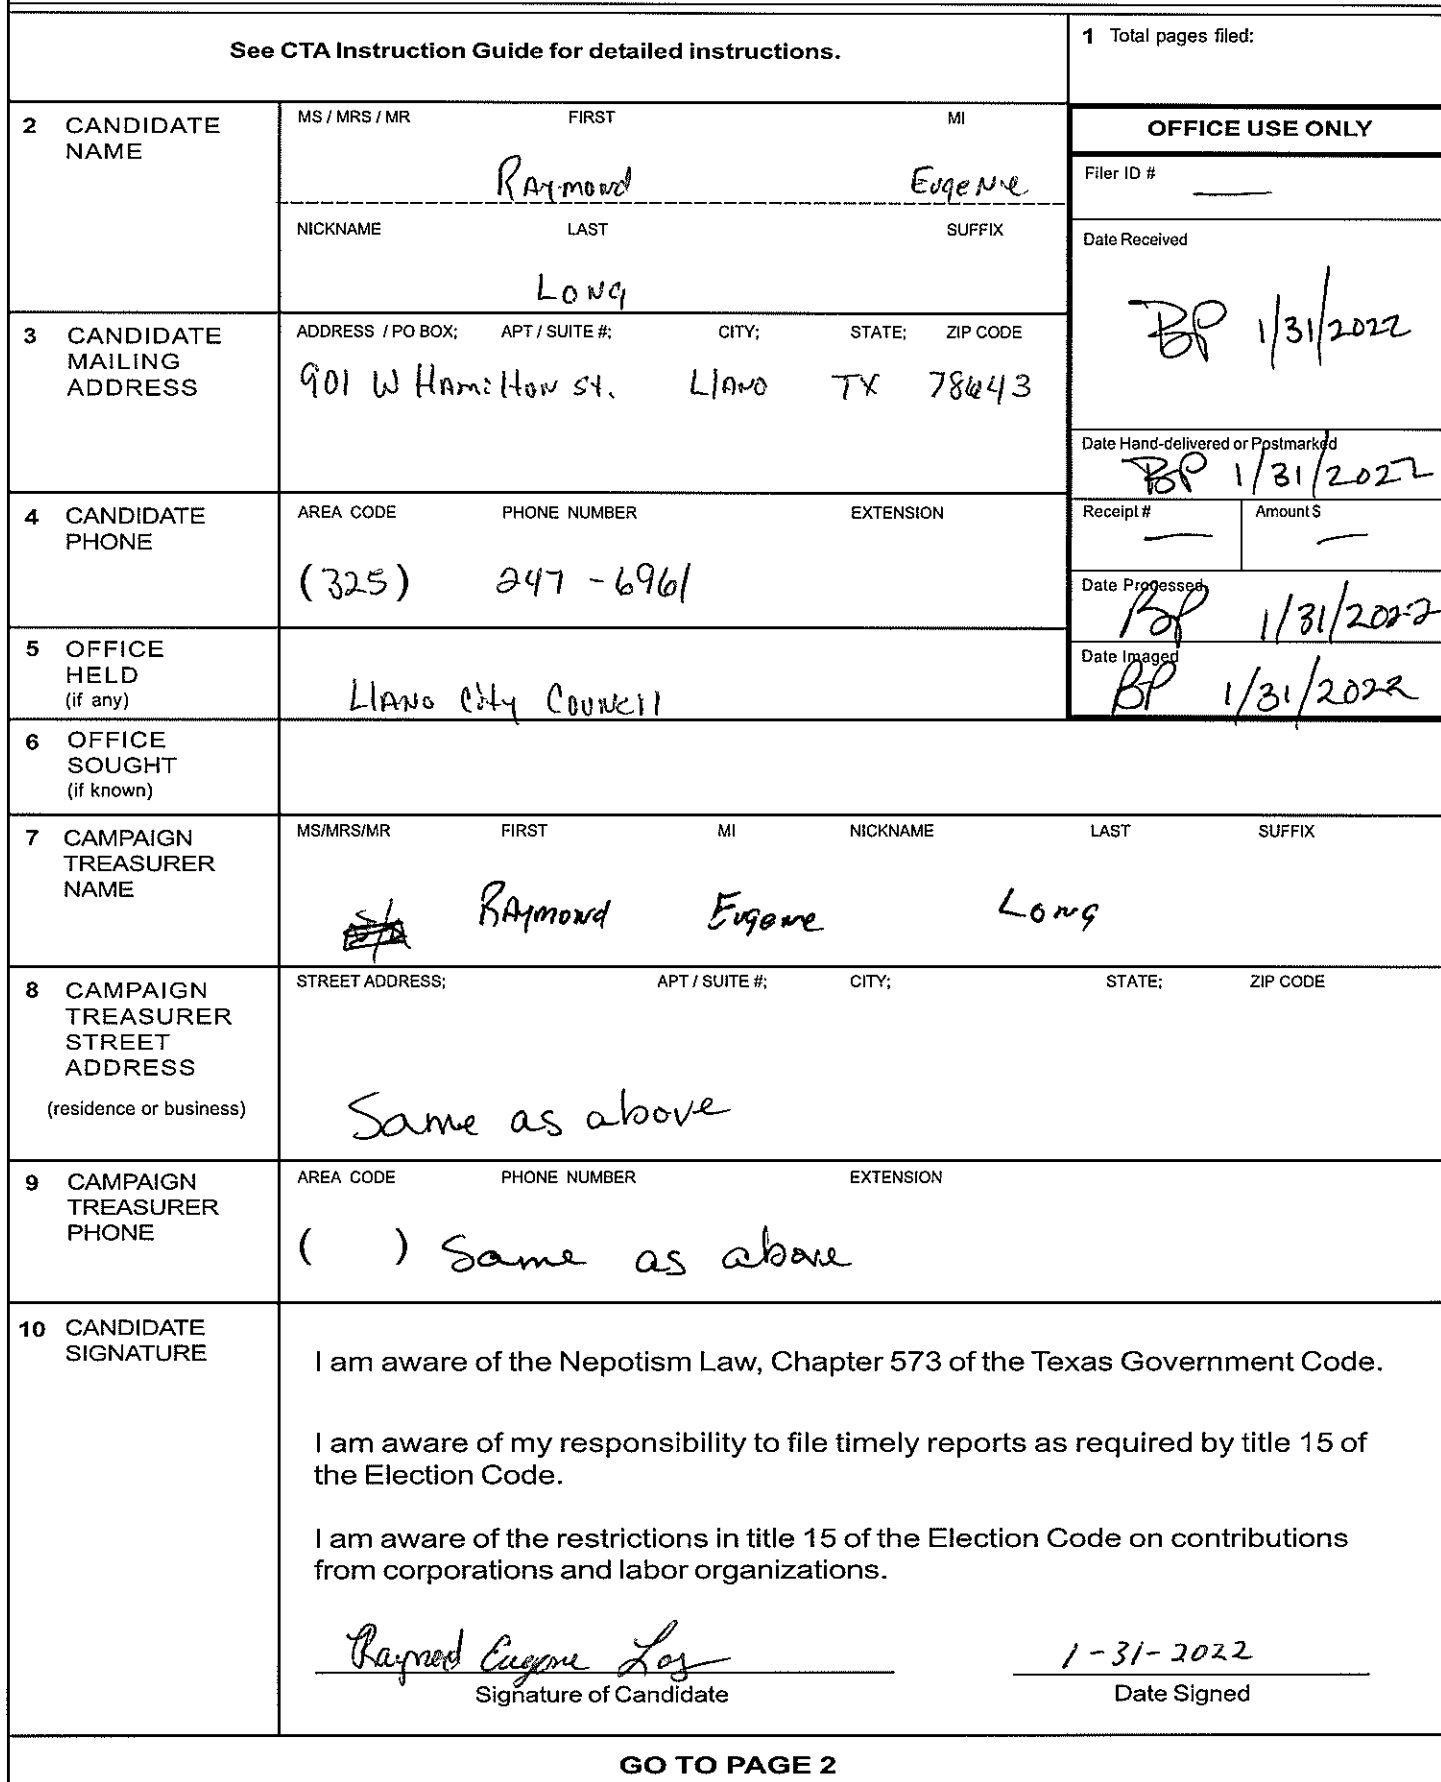 See CTA Instruction Guide for detailed instructions.
1 Total pages filed:
2 CANDIDATE NAME
MS / MRS / MR FIRST MI
Raymond Eugene
NICKNAME LAST SUFFIX
Long
OFFICE USE ONLY
Filer ID #
Date Received
BP 1/31/2022
3 CANDIDATE MAILING ADDRESS
ADDRESS / PO BOX; APT / SUITE #; CITY; STATE; ZIP CODE
901 W Hamilton St. Llano TX 78643
Date Hand-delivered or Postmarked
BP 1/31/2022
4 CANDIDATE PHONE
AREA CODE PHONE NUMBER EXTENSION
(325) 247-6961
Receipt # Amount $
Date Processed
BP 1/31/2022
Date Imaged
BP 1/31/2022
5 OFFICE HELD (if any)
Llano City Council
6 OFFICE SOUGHT (if known)
7 CAMPAIGN TREASURER NAME
MS/MRS/MR FIRST MI NICKNAME LAST SUFFIX
Raymond Eugene Long
8 CAMPAIGN TREASURER STREET ADDRESS
(residence or business)
STREET ADDRESS; APT / SUITE #; CITY; STATE; ZIP CODE
Same as above
9 CAMPAIGN TREASURER PHONE
AREA CODE PHONE NUMBER EXTENSION
( ) Same as above
10 CANDIDATE SIGNATURE
I am aware of the Nepotism Law, Chapter 573 of the Texas Government Code.
I am aware of my responsibility to file timely reports as required by title 15 of
the Election Code.
I am aware of the restrictions in title 15 of the Election Code on contributions
from corporations and labor organizations.
Raymond Eugene Long 1-31-2022
Signature of Candidate Date Signed
GO TO PAGE 2